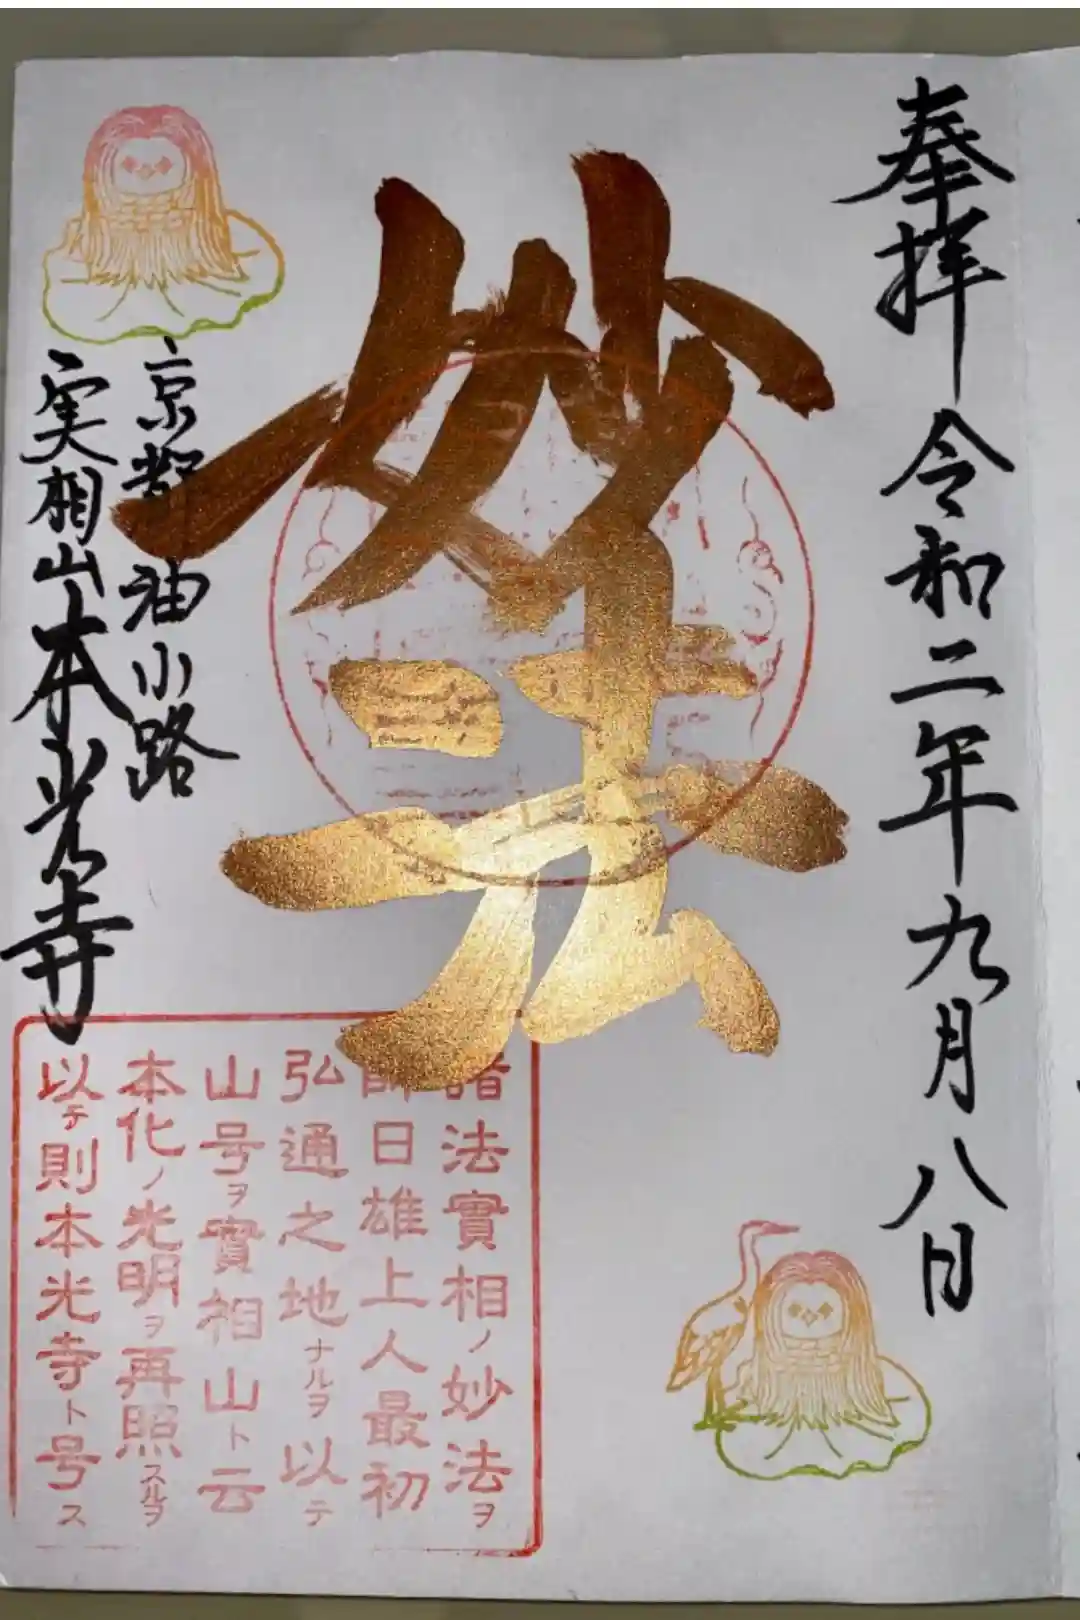 奉拝 令和二年九月八日
妙法
京都油小路
実相山本光寺
諸法實相ノ妙法ヲ
師日雄上人最初
弘通之地ナルヲ以テ
山号ヲ實相山ト云
本化ノ光明ヲ再照スルヲ
以テ則本光寺ト号ス